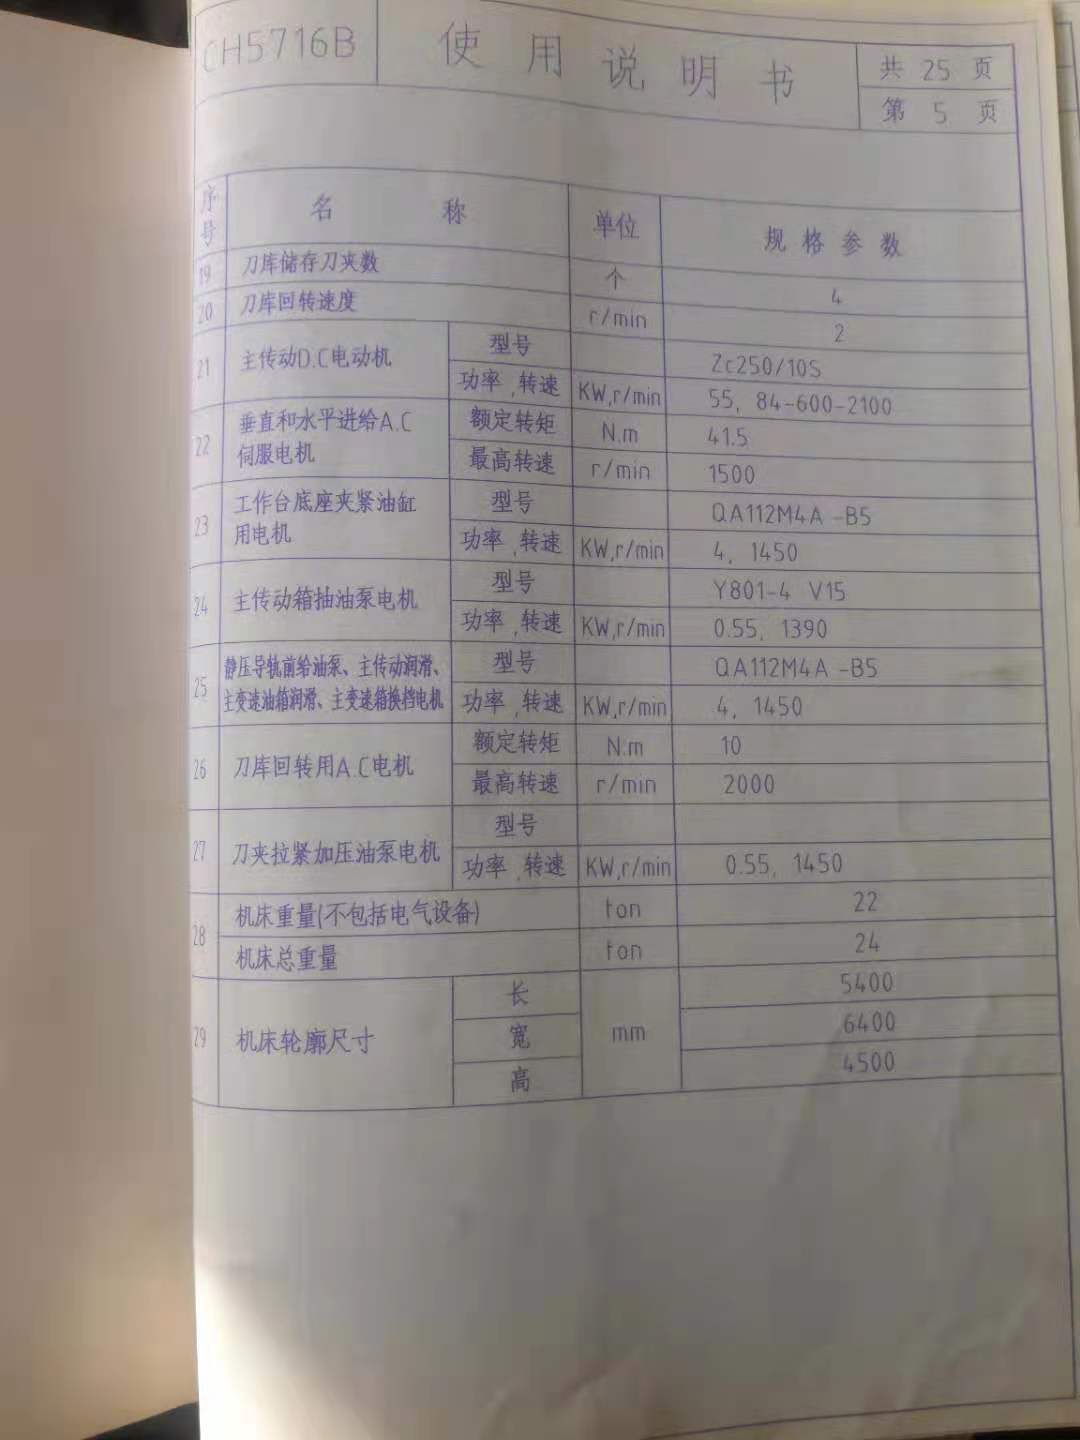 CH5716B
使用说明书
共 25 页
第 5 页
序号 名称 单位 规格参数
19 刀库储存刀夹数 个 4
20 刀库回转速度 r/min 2
21 主传动D.C电动机 型号 Zc250/10S
功率,转速 KW,r/min 55, 84-600-2100
22 垂直和水平进给A.C 额定转矩 N.m 41.5
伺服电机 最高转速 r/min 1500
23 工作台底座夹紧油缸 型号 QA112M4A-B5
用电机 功率,转速 KW,r/min 4, 1450
24 主传动箱抽油泵电机 型号 Y801-4 V15
功率,转速 KW,r/min 0.55, 1390
25 静压导轨前给油泵、主传动润滑、 型号 QA112M4A-B5
主变速油箱润滑、主变速箱换档电机 功率,转速 KW,r/min 4, 1450
26 刀库回转用A.C电机 额定转矩 N.m 10
最高转速 r/min 2000
27 刀夹拉紧加压油泵电机 型号
功率,转速 KW,r/min 0.55, 1450
28 机床重量(不包括电气设备) ton 22
机床总重量 ton 24
29 机床轮廓尺寸 长 mm 5400
宽 6400
高 4500